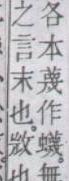 各本蔑作蠛。無
之言末也。敚也